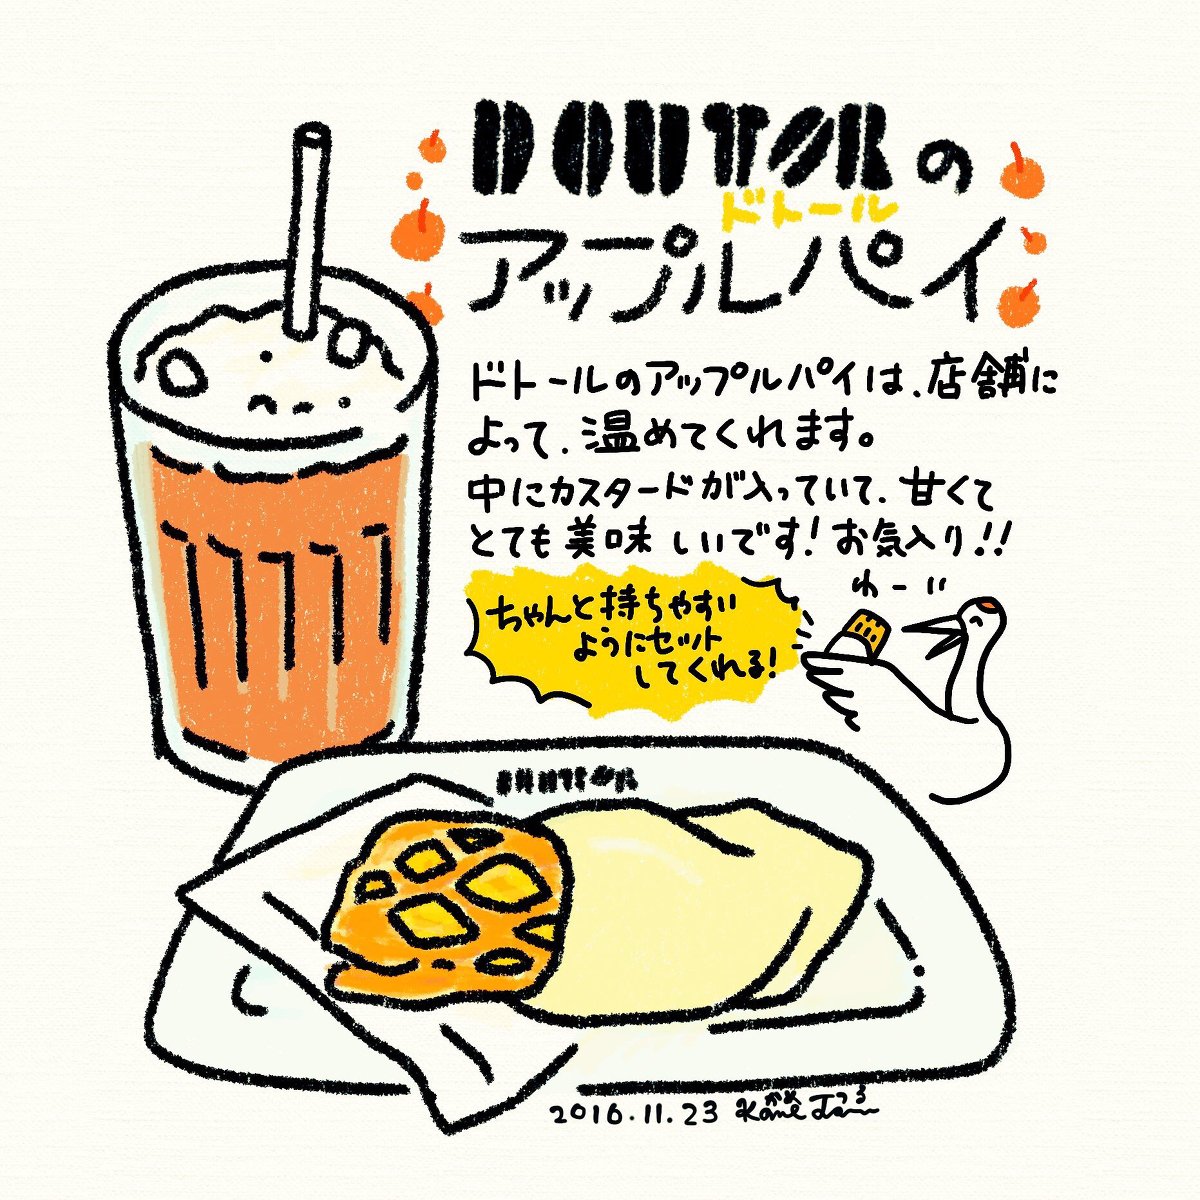 DOUTORの
ドトール
アップルパイ
ドトールのアップルパイは、店舗に
よって、温めてくれます。
中にカスタードが入っていて、甘くて
とても美味しいです!お気入り!!
わーい
ちゃんと持ちやすい
ようにセット
してくれる!
DOUTOR
2016.11.23
かめ
つる